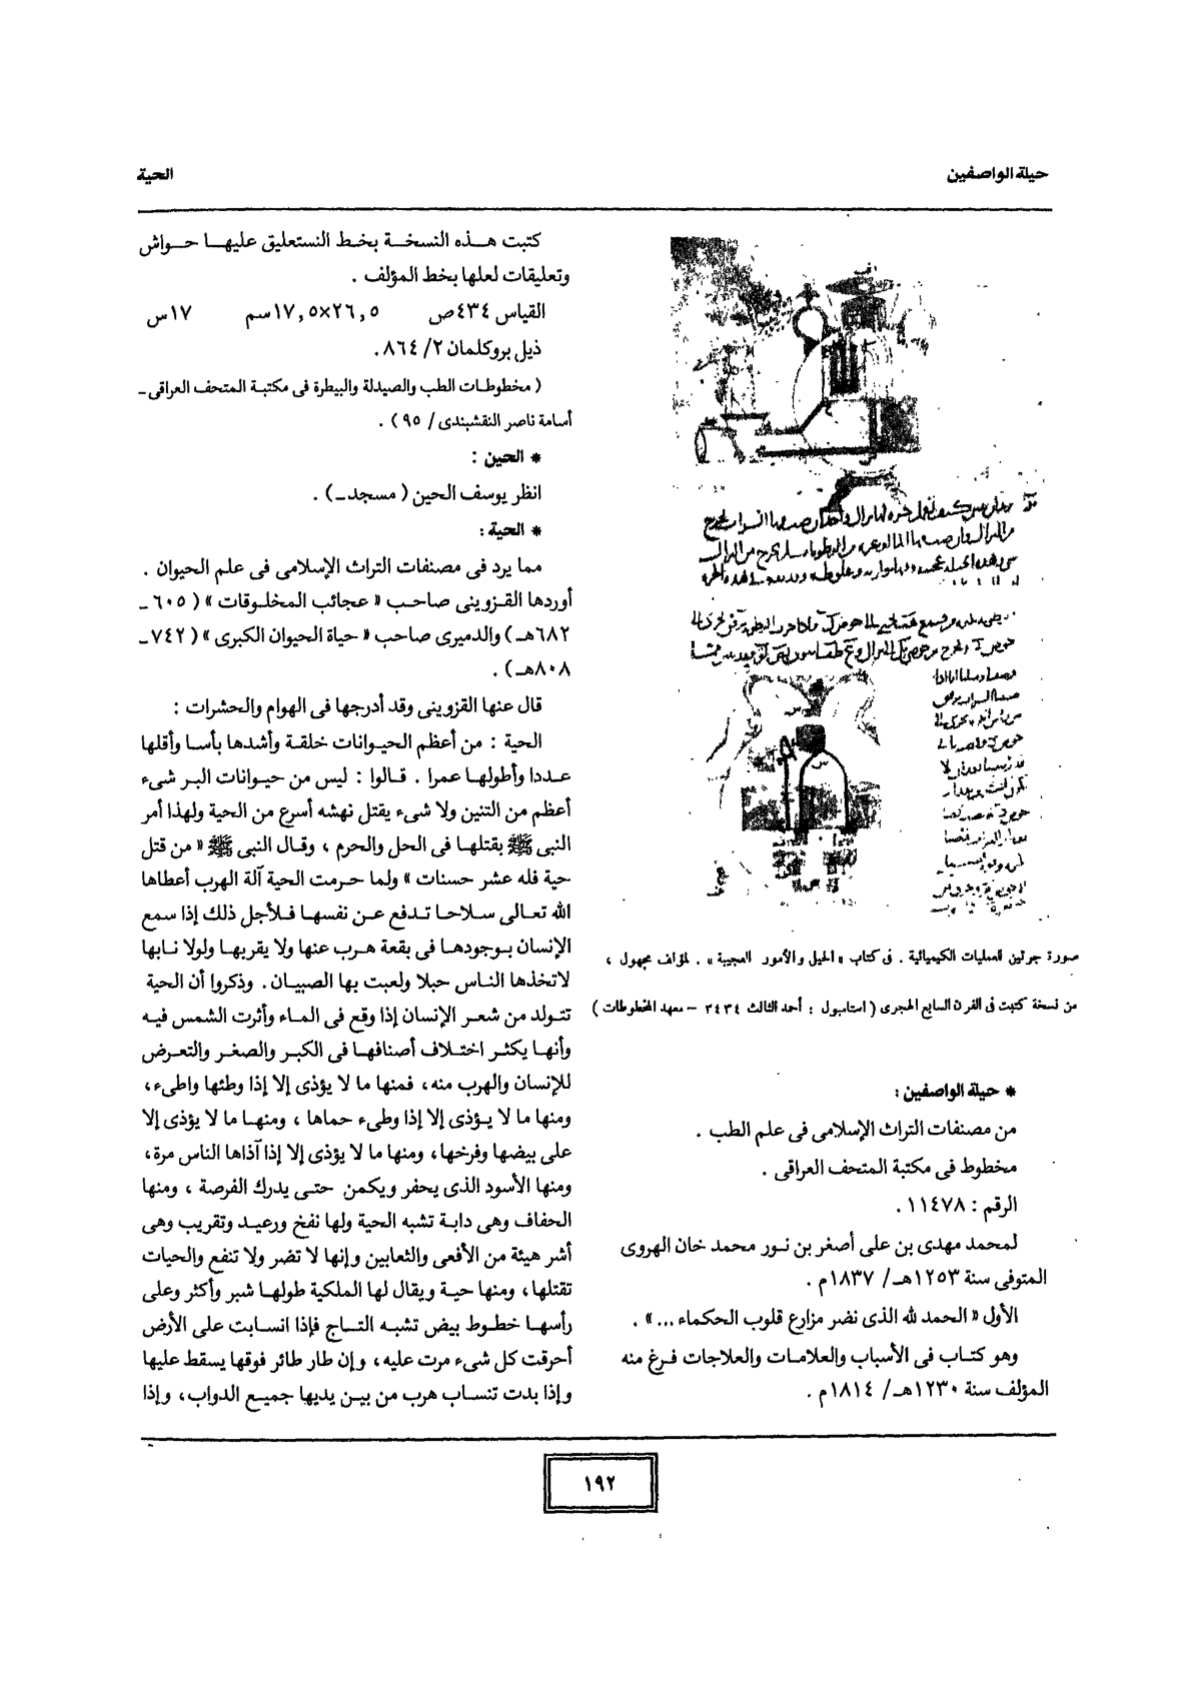 حيلة الواصفين
الحية
صورة جرتين للعمليات الكيميائية . فى كتاب « الحيل والأمور العجيبة » . لمؤلف مجهول ،
من نسخة كتبت فى القرن السابع الهجرى ( استامبول : أحمد الثالث ٣٤٣٤ – معهد المخطوطات )
* حيلة الواصفين :
من مصنفات التراث الإسلامى فى علم الطب .
مخطوط فى مكتبة المتحف العراقى .
الرقم : ١١٤٧٨ .
لمحمد مهدى بن على أصغر بن نور محمد خان الهروى
المتوفى سنة ١٢٥٣هـ/ ١٨٣٧م .
الأول « الحمد لله الذى نضر مزارع قلوب الحكماء ... » .
وهو كتاب فى الأسباب والعلامات والعلاجات فرغ منه
المؤلف سنة ١٢٣٠هـ/ ١٨١٤م .
كتبت هذه النسخة بخط النستعليق عليها حواش
وتعليقات لعلها بخط المؤلف .
القياس ٤٣٤ص ٢٦,٥×١٧,٥سم ١٧س
ذيل بروكلمان ٢/ ٨٦٤ .
( مخطوطات الطب والصيدلة والبيطرة فى مكتبة المتحف العراقى ـ
أسامة ناصر النقشبندى / ٩٥ ) .
* الحين :
انظر يوسف الحين ( مسجد ـ ) .
* الحية :
مما يرد فى مصنفات التراث الإسلامى فى علم الحيوان .
أوردها القزوينى صاحب « عجائب المخلوقات » ( ٦٠٥ ـ
٦٨٢هـ ) والدميرى صاحب « حياة الحيوان الكبرى » ( ٧٤٢ ـ
٨٠٨هـ ) .
قال عنها القزوينى وقد أدرجها فى الهوام والحشرات :
الحية : من أعظم الحيوانات خلقة وأشدها بأسا وأقلها
عددا وأطولها عمرا . قالوا : ليس من حيوانات البر شىء
أعظم من التنين ولا شىء يقتل نهشه أسرع من الحية ولهذا أمر
النبى ﷺ بقتلها فى الحل والحرم ، وقال النبى ﷺ « من قتل
حية فله عشر حسنات » ولما حرمت الحية آلة الهرب أعطاها
الله تعالى سلاحا تدفع عن نفسها فلأجل ذلك إذا سمع
الإنسان بوجودها فى بقعة هرب عنها ولا يقربها ولولا نابها
لاتخذها الناس حبلا ولعبت بها الصبيان . وذكروا أن الحية
تتولد من شعر الإنسان إذا وقع فى الماء وأثرت الشمس فيه
وأنها يكثر اختلاف أصنافها فى الكبر والصغر والتعرض
للإنسان والهرب منه ، فمنها ما لا يؤذى إلا إذا وطئها واطىء ،
ومنها ما لا يؤذى إلا إذا وطىء حماها ، ومنها ما لا يؤذى إلا
على بيضها وفرخها ، ومنها ما لا يؤذى إلا إذا آذاها الناس مرة ،
ومنها الأسود الذى يحفر ويكمن حتى يدرك الفرصة ، ومنها
الحفاف وهى دابة تشبه الحية ولها نفخ ورعيد وتقريب وهى
أشر هيئة من الأفعى والثعابين وإنها لا تضر ولا تنفع والحيات
تقتلها ، ومنها حية ويقال لها الملكية طولها شبر وأكثر وعلى
رأسها خطوط بيض تشبه التاج فإذا انسابت على الأرض
أحرقت كل شىء مرت عليه ، وإن طار طائر فوقها يسقط عليها
وإذا بدت تنساب هرب من بين يديها جميع الدواب ، وإذا
١٩٢